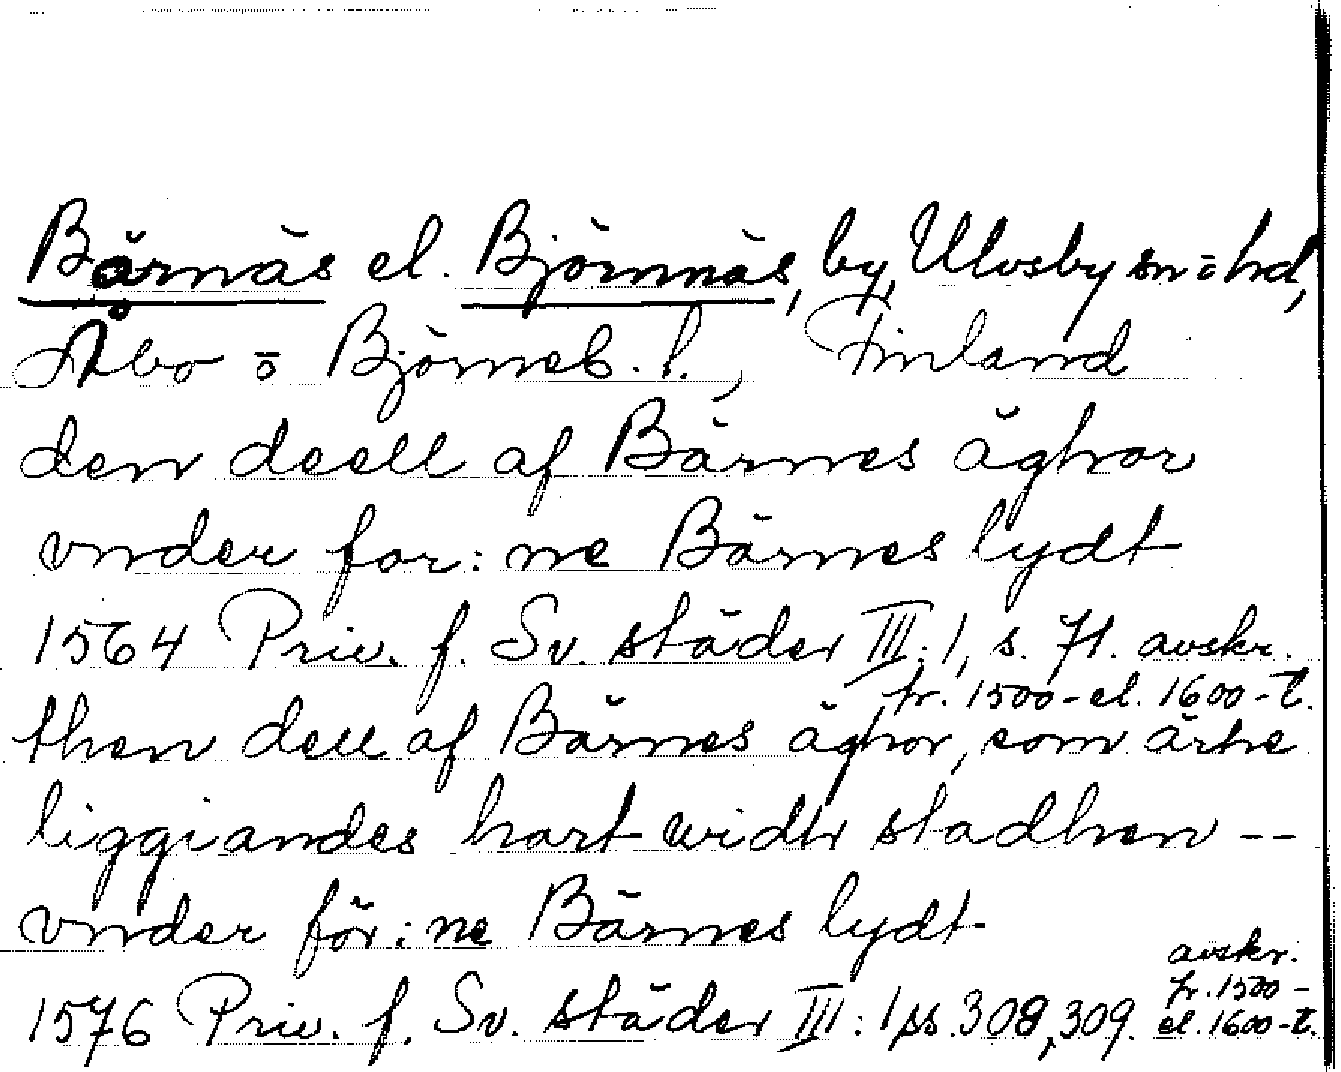 Bärnäs el. Björnnäs, by, Ulvsby sn o hd,
Åbo o Björneb. l., Finland
den deell af Bärnes äghor
vnder for:ne Bärnes lydt
1564 Priv. f. Sv. städer III:1, s. 71. avskr.
fr. 1500- el. 1600-t.
then dell af Bärnes äghor, som ärhe
liggiandes hart widh stadhen --
vnder för:ne Bärnes lydt
1576 Priv. f. Sv. städer III:1, ss. 308, 309. avskr.
fr. 1500-
el. 1600-t.